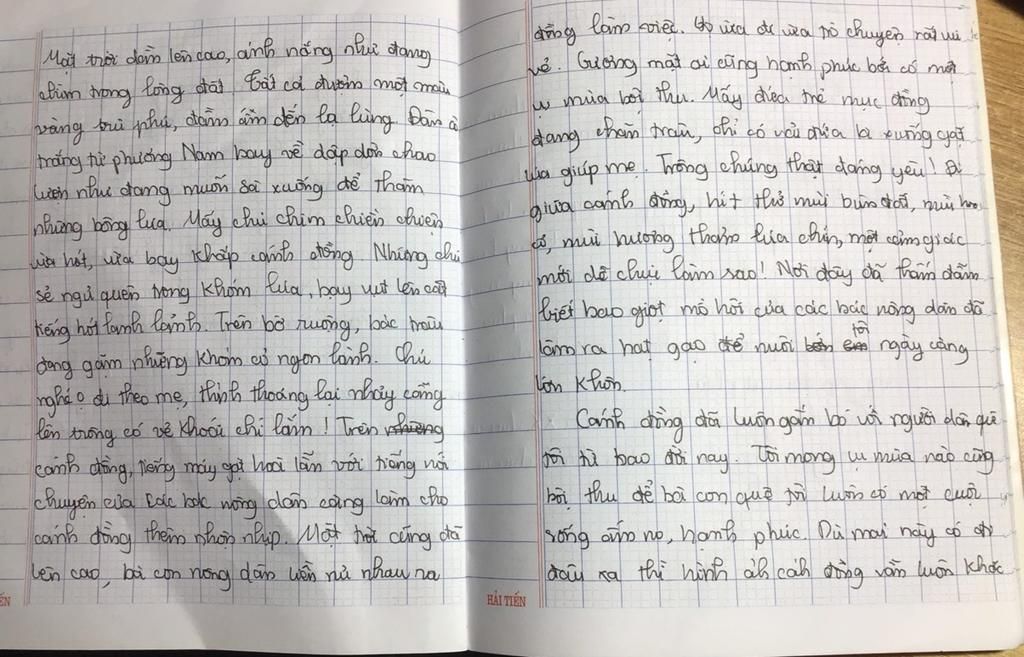 Mặt trời dần lên cao, ánh nắng như đang
chìm trong lòng đất. Tất cả đượm một màu
vàng trù phú, đầm ấm đến lạ lùng. Đàn cò
trắng từ phương Nam bay về dập dờn chao
lượn như đang muốn sà xuống để thăm
những bông lúa. Mấy chú chim chiền chiện
vừa hót, vừa bay khắp cánh đồng. Những chú
sẻ ngủ quên trong khóm lúa, bay vụt lên cất
tiếng hót lanh lảnh. Trên bờ ruộng, bác trâu
đang gặm những khóm cỏ ngon lành. Chú
nghé o đi theo mẹ, thỉnh thoảng lại nhảy cẫng
lên trông có vẻ khoái chí lắm! Trên những
cánh đồng, tiếng máy gặt hoà lẫn với tiếng nói
chuyện của các bác nông dân càng làm cho
cánh đồng thêm nhộn nhịp. Mặt trời cũng đã
lên cao, bà con nông dân liền rủ nhau ra
HẢI TIẾN
đồng làm việc. Họ vừa đi vừa trò chuyện rất vui
vẻ. Gương mặt ai cũng hạnh phúc bởi có một
vụ mùa bội thu. Mấy đứa trẻ mục đồng
đang chăn trâu, chỉ có vài đứa là xuống gặt
lúa giúp mẹ. Trông chúng thật đáng yêu! Đi
giữa cánh đồng, hít thở mùi bùn đất, mùi
cỏ, mùi hương thơm lúa chín, một cảm giác
mới dễ chịu làm sao! Nơi đây đã thấm đẫm
biết bao giọt mồ hôi của các bác nông dân đã
làm ra hạt gạo để nuôi tôi ngày càng
lớn khôn.
Cánh đồng đã luôn gắn bó với người dân quê
tôi từ bao đời nay. Tôi mong vụ mùa nào cũng
bội thu để bà con quê tôi luôn có một cuộc
sống ấm no, hạnh phúc. Dù mai này có đi
đâu xa thì hình ảnh cánh đồng vẫn luôn khắc